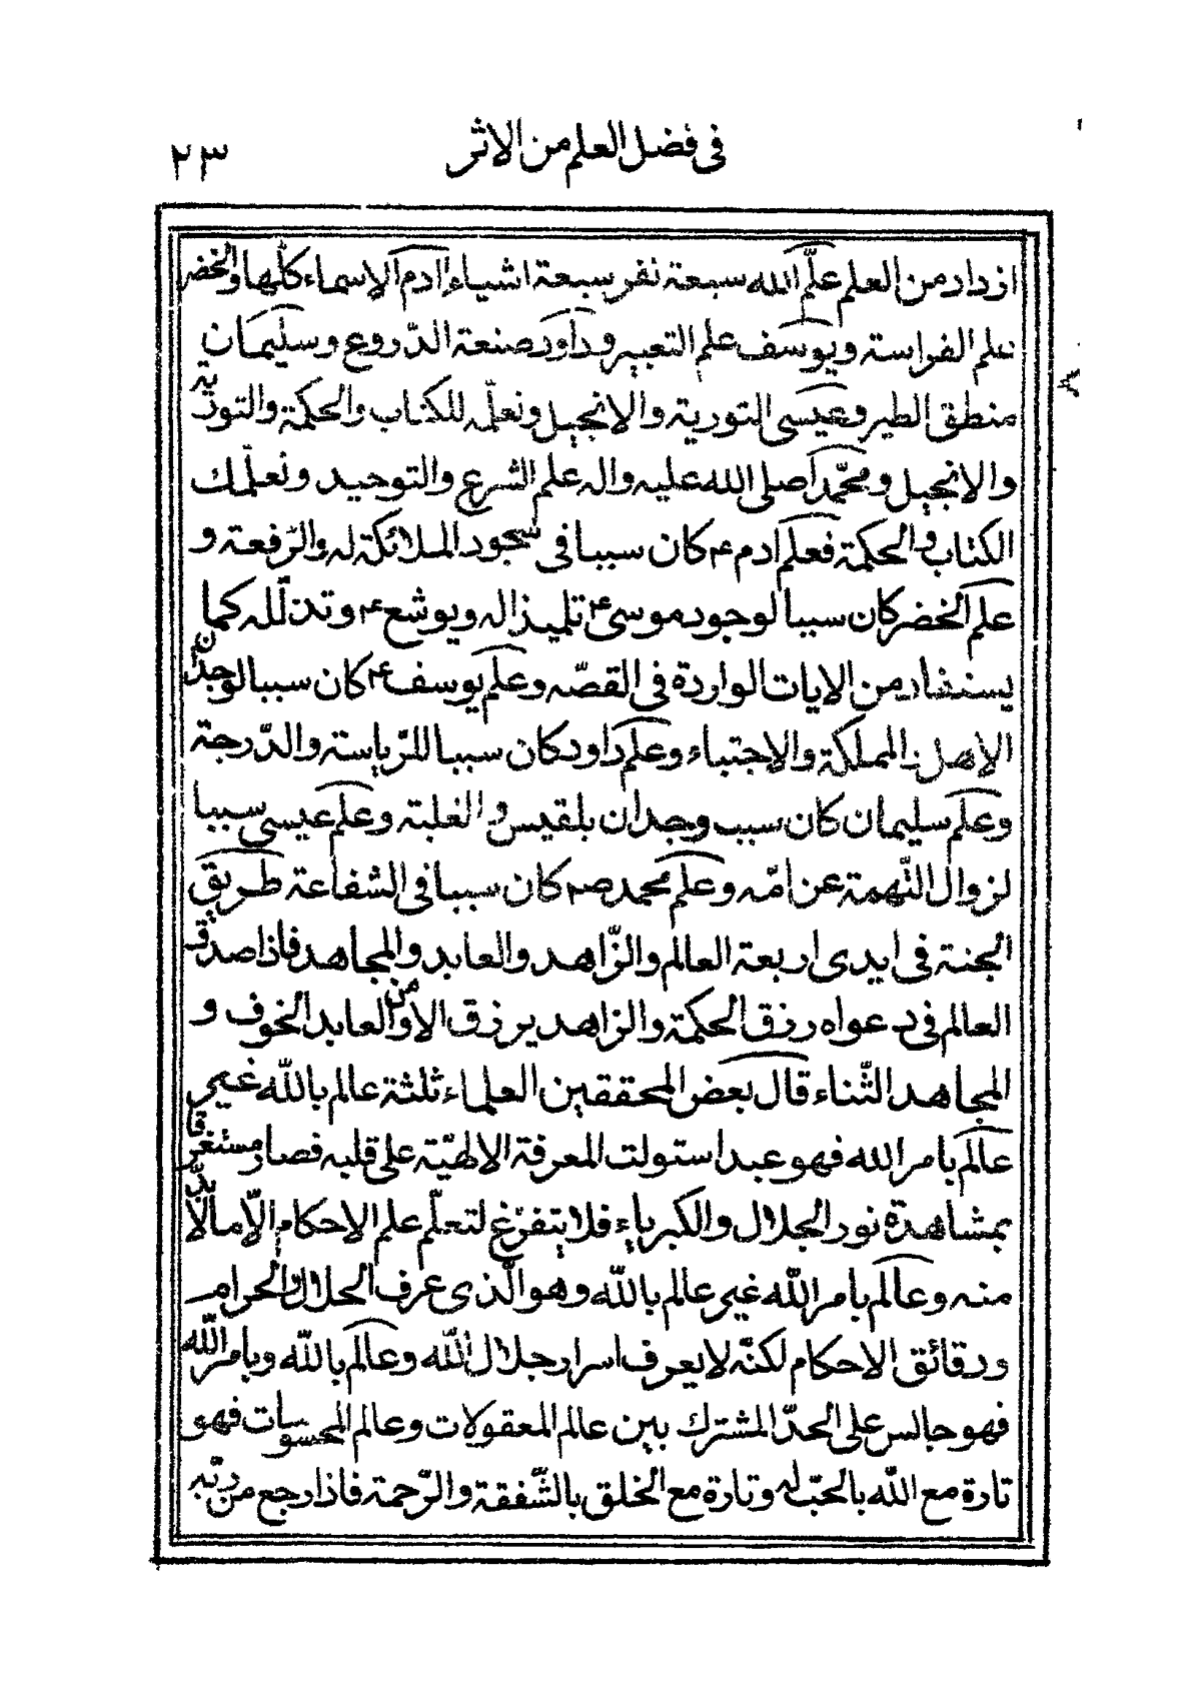 في فضل العلم من الاثر
٢٣
ازداد من العلم علّم الله سبعة نفر سبعة اشياء ادم الاسماء كلّها والخضر
علم الفراسة ويوسف علم التعبير وداود صنعة الدّروع وسليمان
منطق الطير وعيسى التورية والانجيل ونعلّمه للكتاب والحكمة والتورية
والانجيل ومحمّدا صلى الله عليه واله علم الشرع والتوحيد ونعلّمك
الكتاب والحكمة فعلم ادم ٤ كان سببا في سجود الملائكة له والرّفعة و
علم الخضر كان سببا لوجود موسى ٤ تلميذا له ويوشع ٤ وتذلّله كما
يستشار من الايات الواردة في القصّه وعلم يوسف ٤ كان سببا لوجدان
الاهل المملكة والاجتباء وعلم داود كان سببا للرّياسة والدّرجة
وعلم سليمان كان سبب وجدان بلقيس والغلبة وعلم عيسى سببا
لزوال التّهمة عن امّه وعلم محمد ص كان سببا في الشفاعة طريق
الجنة في ايدى اربعة العالم والزّاهد والعابد والمجاهد فاذا صدق
العالم في دعواه رزق الحكمة والزاهد يرزق الامن والعابد الخوف و
المجاهد الثّناء قال بعض المحققين العلماء ثلثة عالم بالله غير
عالم بامر الله فهو عبد استولت المعرفة الالهيّة على قلبه فصار مستغرقا
بمشاهدة نور الجلال والكبرياء فلا يتفرّغ لتعلّم علم الاحكام الّا ما لا بدّ
منه وعالم بامر الله غير عالم بالله وهو الّذى عرف الحلال والحرام
ودقائق الاحكام لكنّه لا يعرف اسرار جلال الله وعالم بالله وبامر الله
فهو جالس على الحدّ المشترك بين عالم المعقولات وعالم المحسوسات فهو
تارة مع الله بالحبّ له وتارة مع الخلق بالشّفقة والرّحمة فاذا رجع من ربّه